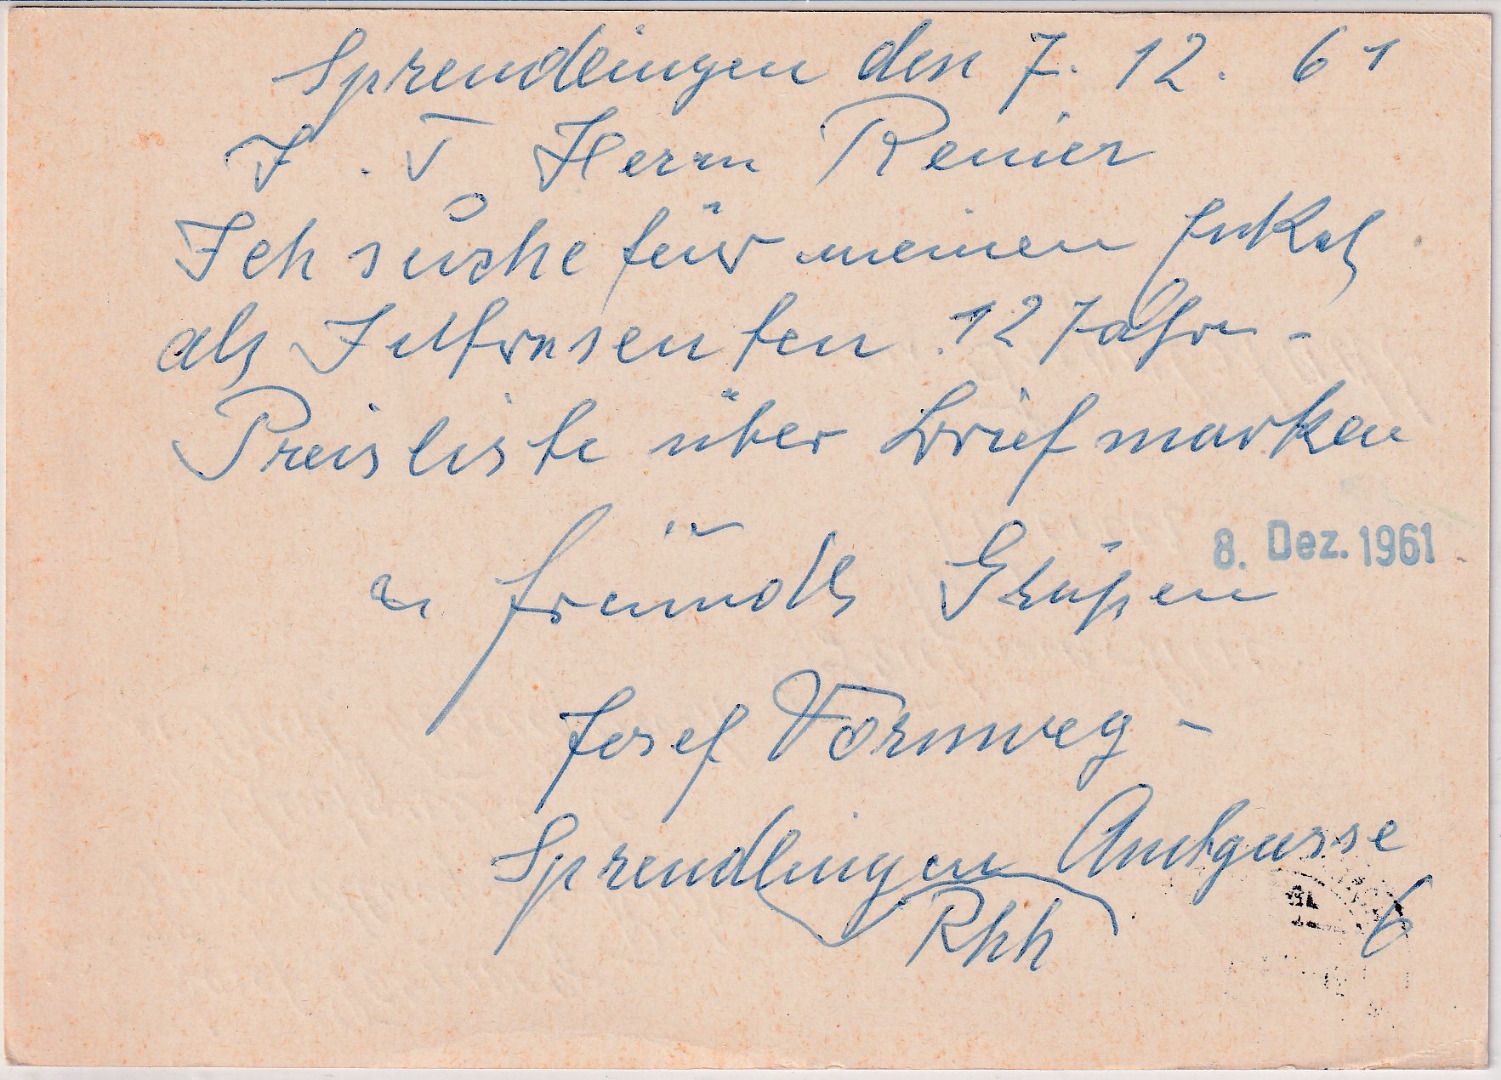 Sprendlingen den 7. 12. 61
J. T. Herrn Renier
Ich suche für meinen Enkel
als Interesenten 12 Jahre -
Preisliste über Briefmarken
8. Dez. 1961
m freundl Grüßen
Josef Vornweg -
Sprendlingen Amtgasse
Rhh 6